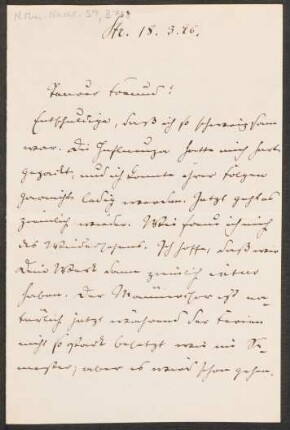 Str. 18.3.26.
Teurer Freund!
Entschuldige, daß ich so schweigsam
war. Die Influenza hatte mich stark
gepackt, und ich konnte ihrer Folgen
garnicht ledig werden. Jetzt geht es
ziemlich wieder. Wie freue ich mich
des Wiedersehens. Ich hoffe, daß wir
Dein Werk dann ziemlich
haben. Der Männerchor ist na-
türlich jetzt während der Ferien
nicht so stark besetzt wie im Se-
mester, aber es wird schon gehen.